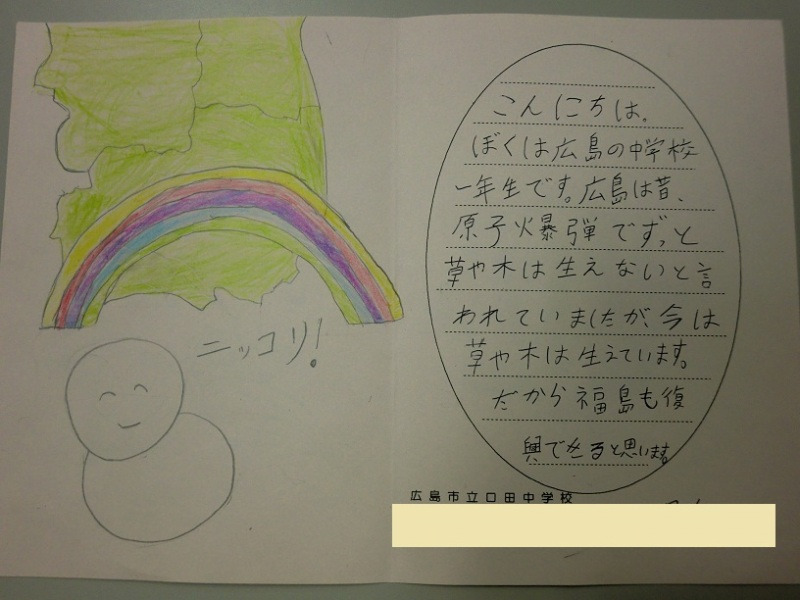 ニッコリ!
こんにちは。
ぼくは広島の中学校
一年生です。広島は昔、
原子爆弾でずっと
草や木は生えないと言
われていましたが、今は
草や木は生えています。
だから福島も復
興できると思います。
広島市立口田中学校